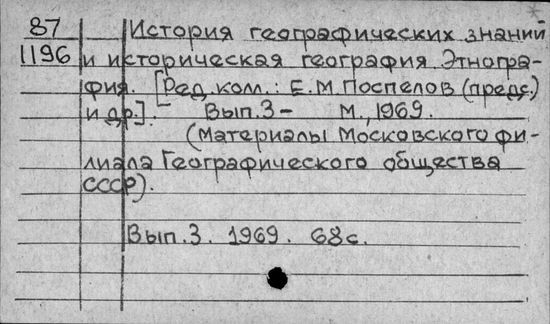 87 История географических знаний
1196 и историческая география Этногра-
фия. [Ред. колл.: Е.М Поспелов (предс.)
и др.]. Вып.3- М., 1969.
(Материалы Московского фи-
лиала Географического общества
СССР).
Вып.3. 1969. 68с.